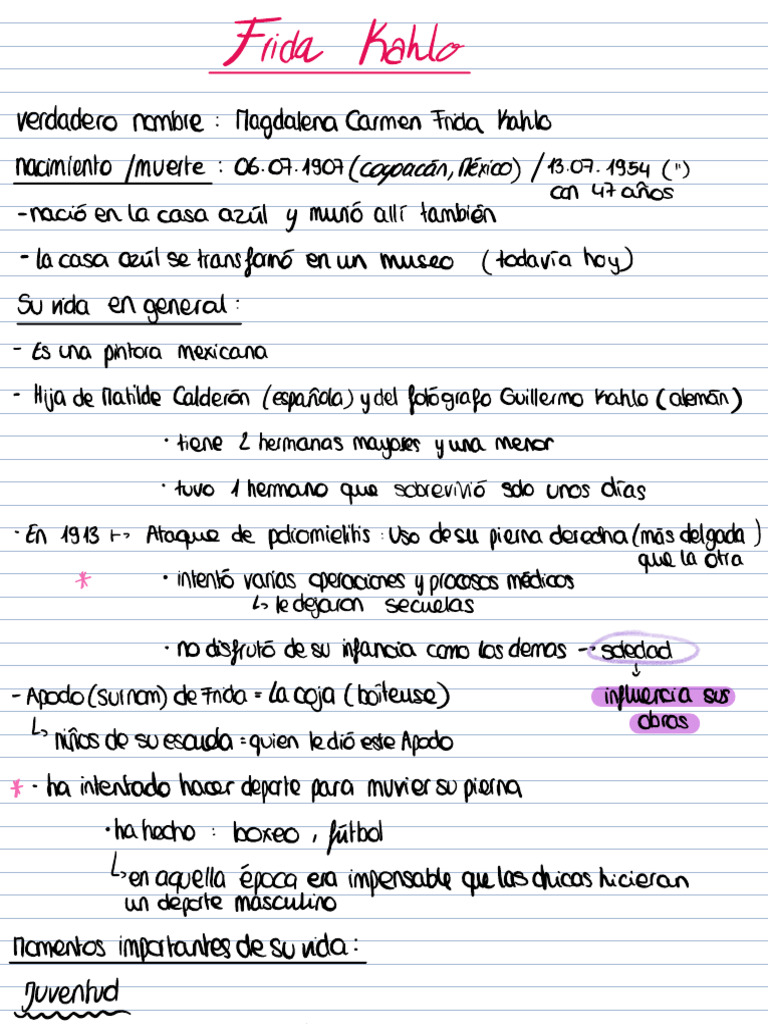 Frida Kahlo
verdadero nombre : Magdalena Carmen Frida Kahlo
nacimiento /muerte : 06.07.1907 (Coyoacán, México) / 13.07.1954 (")
con 47 años
-nació en la casa azúl y murió allí también
- la casa azúl se transformó en un museo (todavía hoy)
Su vida en general :
- Es una pintora mexicana
- Hija de Matilde Calderón (española) y del fotógrafo Guillermo Kahlo (alemán)
· tiene 2 hermanas mayores y una menor
· tuvo 1 hermano que sobrevivió solo unos días
· En 1913 → Ataque de poliomielitis : Uso de su pierna derecha (más delgada )
que la otra
* · intentó varias operaciones y procesos médicos
↳ le dejaron secuelas
· no disfrutó de su infancia como los demas → soledad
↓
- Apodo (surnom) de Frida = la coja (boiteuse) influencia sus
obras
↳ niños de su escuela = quien le dió este Apodo
* · ha intentado hacer deporte para muvier su pierna
· ha hecho : boxeo , fútbol
↳ en aquella época era impensable que las chicas hicieran
un deporte masculino
Momentos importantes de su vida :
Juventud